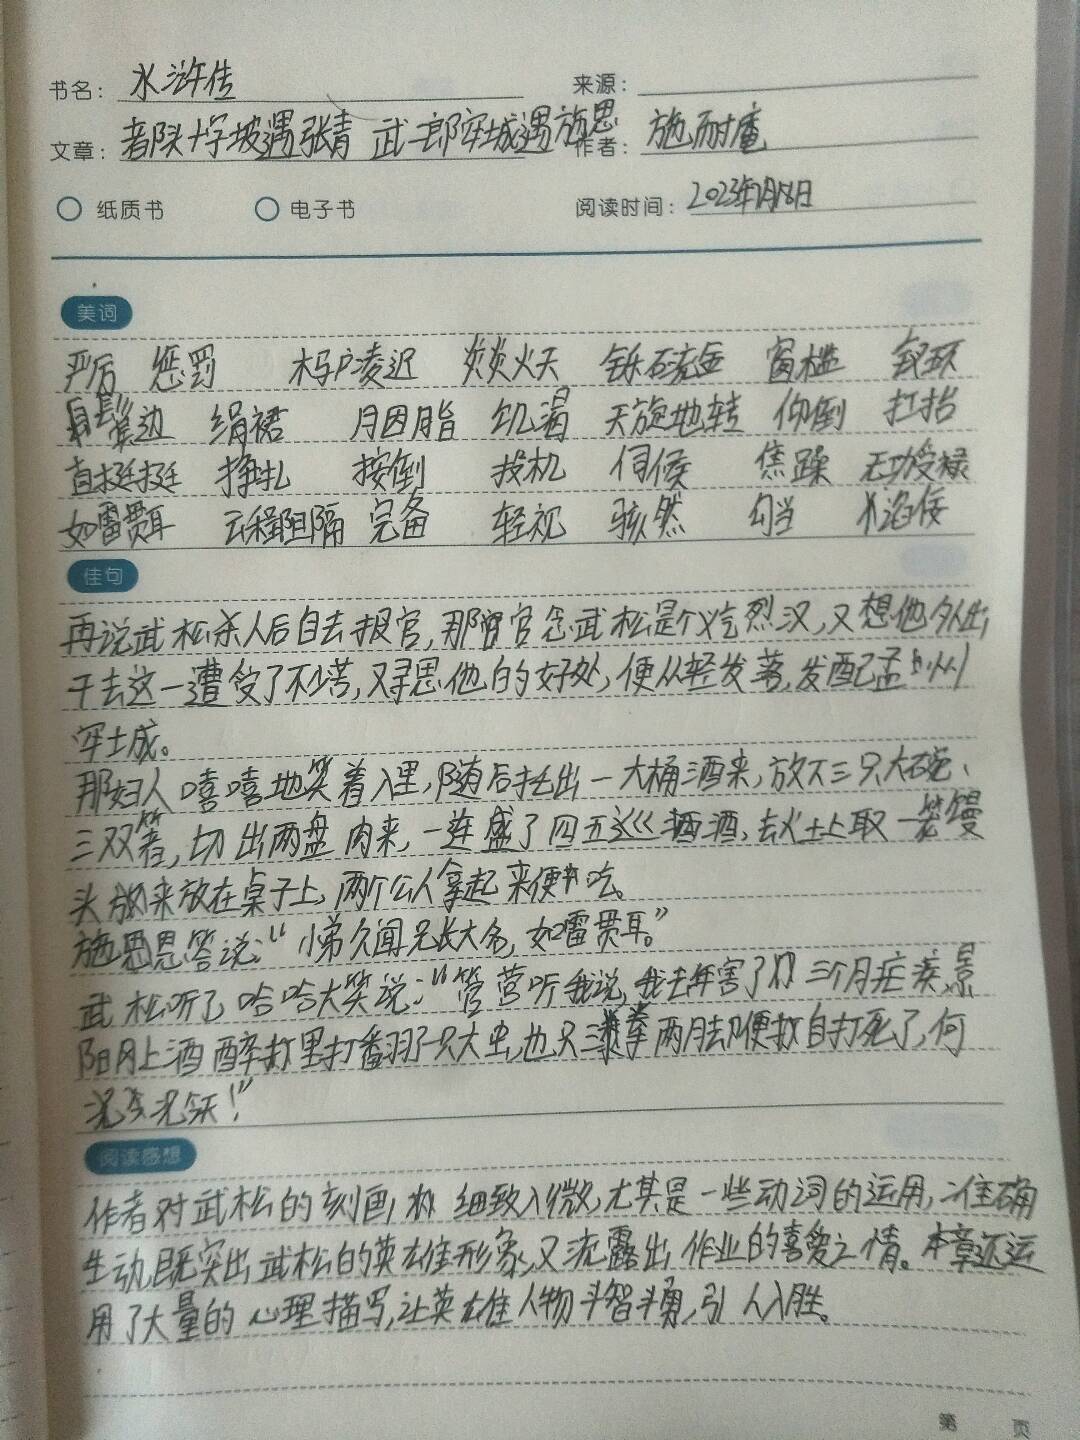 书名: 水浒传 来源:
文章: 都头十字坡遇张青 武二郎牢城遇施恩 作者: 施耐庵
纸质书 电子书 阅读时间: 2023年1月18日
美词
严厉 惩罚 门户凌迟 炎炎火天 铄石流金 窗槛 钗环
鬓边 绢裙 胭脂 饥渴 天旋地转 仰倒 扛抬
直挺挺 挣扎 按倒 投机 伺候 焦躁 无功受禄
如雷贯耳 云程阻隔 完备 轻视 骇然 勾当 谄佞
佳句
再说武松杀人后自去报官,那官念武松是个义气烈汉,又想他外出
干去这一遭受了不少苦,又寻思他的好处,便从轻发落,发配孟州
牢城。
那妇人嘻嘻地笑着入里,随后托出一大桶酒来,放下三只大碗、
三双箸,切出两盘肉来,一连盛了四五巡酒,去灶上取一笼馒
头来放在桌子上,两个公人拿起来便吃。
施恩答说:“小弟久闻兄长大名,如雷贯耳。”
武松听了,哈哈大笑说:“管营听我说,我去年害了三个月疟疾,景
阳冈上酒醉里打翻了一只大虫,也只三拳两脚便自打死了,何
况今日!”
阅读感想
作者对武松的刻画,细致入微,尤其是一些动词的运用,准确
生动,既突出武松的英雄形象,又流露出作业的喜爱之情。本章还运
用了大量的心理描写,让英雄人物斗智斗勇,引人入胜。
第 页